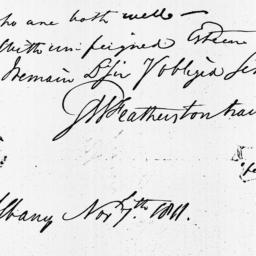 ho are both well —
With unfeigned Esteem
I remain D Sir Y obliged
G W Featherstonhau
lbany Nov 7th 1811.